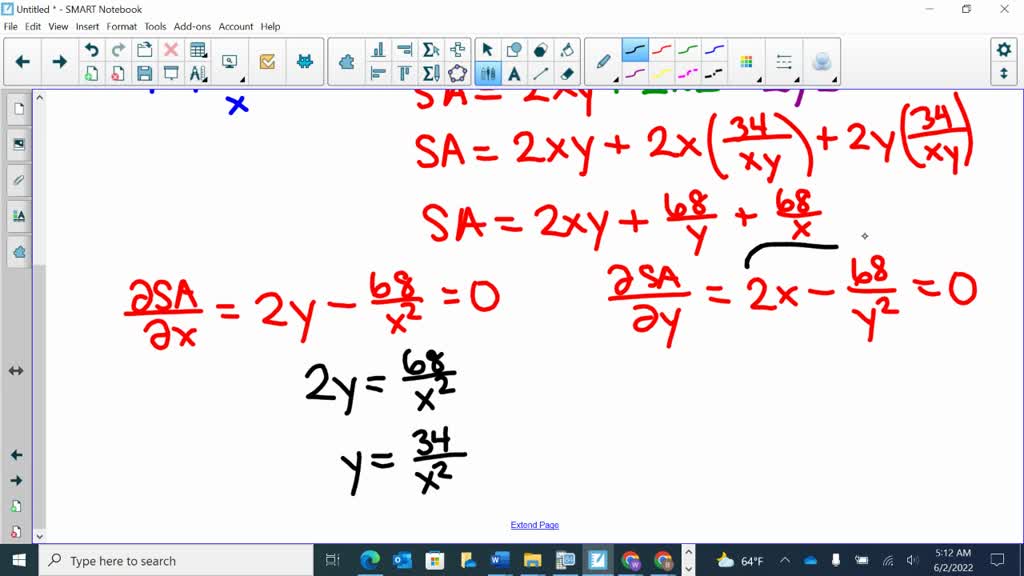 Untitled * - SMART Notebook
File Edit View Insert Format Tools Add-ons Account Help
x
SA = 2xy
SA = 2xy + 2x(34/xy) + 2y(34/xy)
SA = 2xy + 68/y + 68/x
∂SA/∂x = 2y - 68/x² = 0
∂SA/∂y = 2x - 68/y² = 0
2y = 68/x²
y = 34/x²
Extend Page
Type here to search
64°F
5:12 AM
6/2/2022